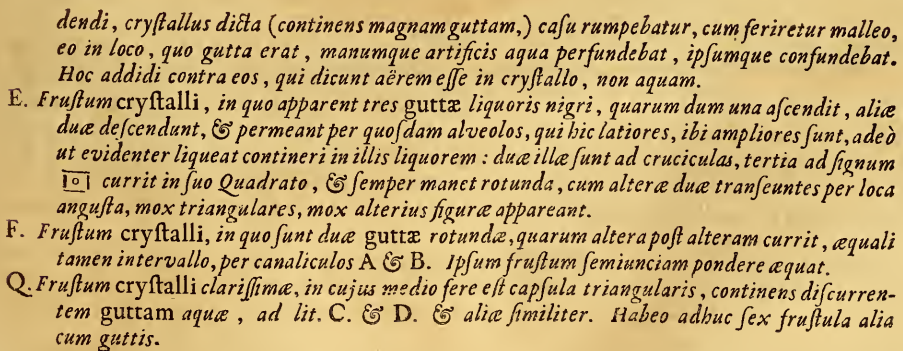 dendi, cryſtallus dicta (continens magnam guttam,) caſu rumpebatur, cum feriretur malleo,
eo in loco, quo gutta erat, manumque artificis aqua perfundebat, ipſumque confundebat.
Hoc addidi contra eos, qui dicunt aërem eſſe in cryſtallo, non aquam.
E. Fruſtum cryſtalli, in quo apparent tres guttæ liquoris nigri, quarum dum una aſcendit, aliæ
duæ deſcendunt, & permeant per quoſdam alveolos, qui hic latiores, ibi ampliores ſunt, adeò
ut evidenter liqueat contineri in illis liquorem : duæ illæ ſunt ad cruciculas, tertia ad ſignum
[o] currit in ſuo Quadrato, & ſemper manet rotunda, cum alteræ duæ tranſeuntes per loca
anguſta, mox triangulares, mox alterius figuræ appareant.
F. Fruſtum cryſtalli, in quo ſunt duæ guttæ rotundæ, quarum altera poſt alteram currit, æquali
tamen intervallo, per canaliculos A & B. Ipſum fruſtum ſemiunciam pondere æquat.
Q. Fruſtum cryſtalli clariſſimæ, in cujus medio fere eſt capſula triangularis, continens diſcurren-
tem guttam aquæ, ad lit. C. & D. & aliæ ſimiliter. Habeo adhuc ſex fruſtula alia
cum guttis.